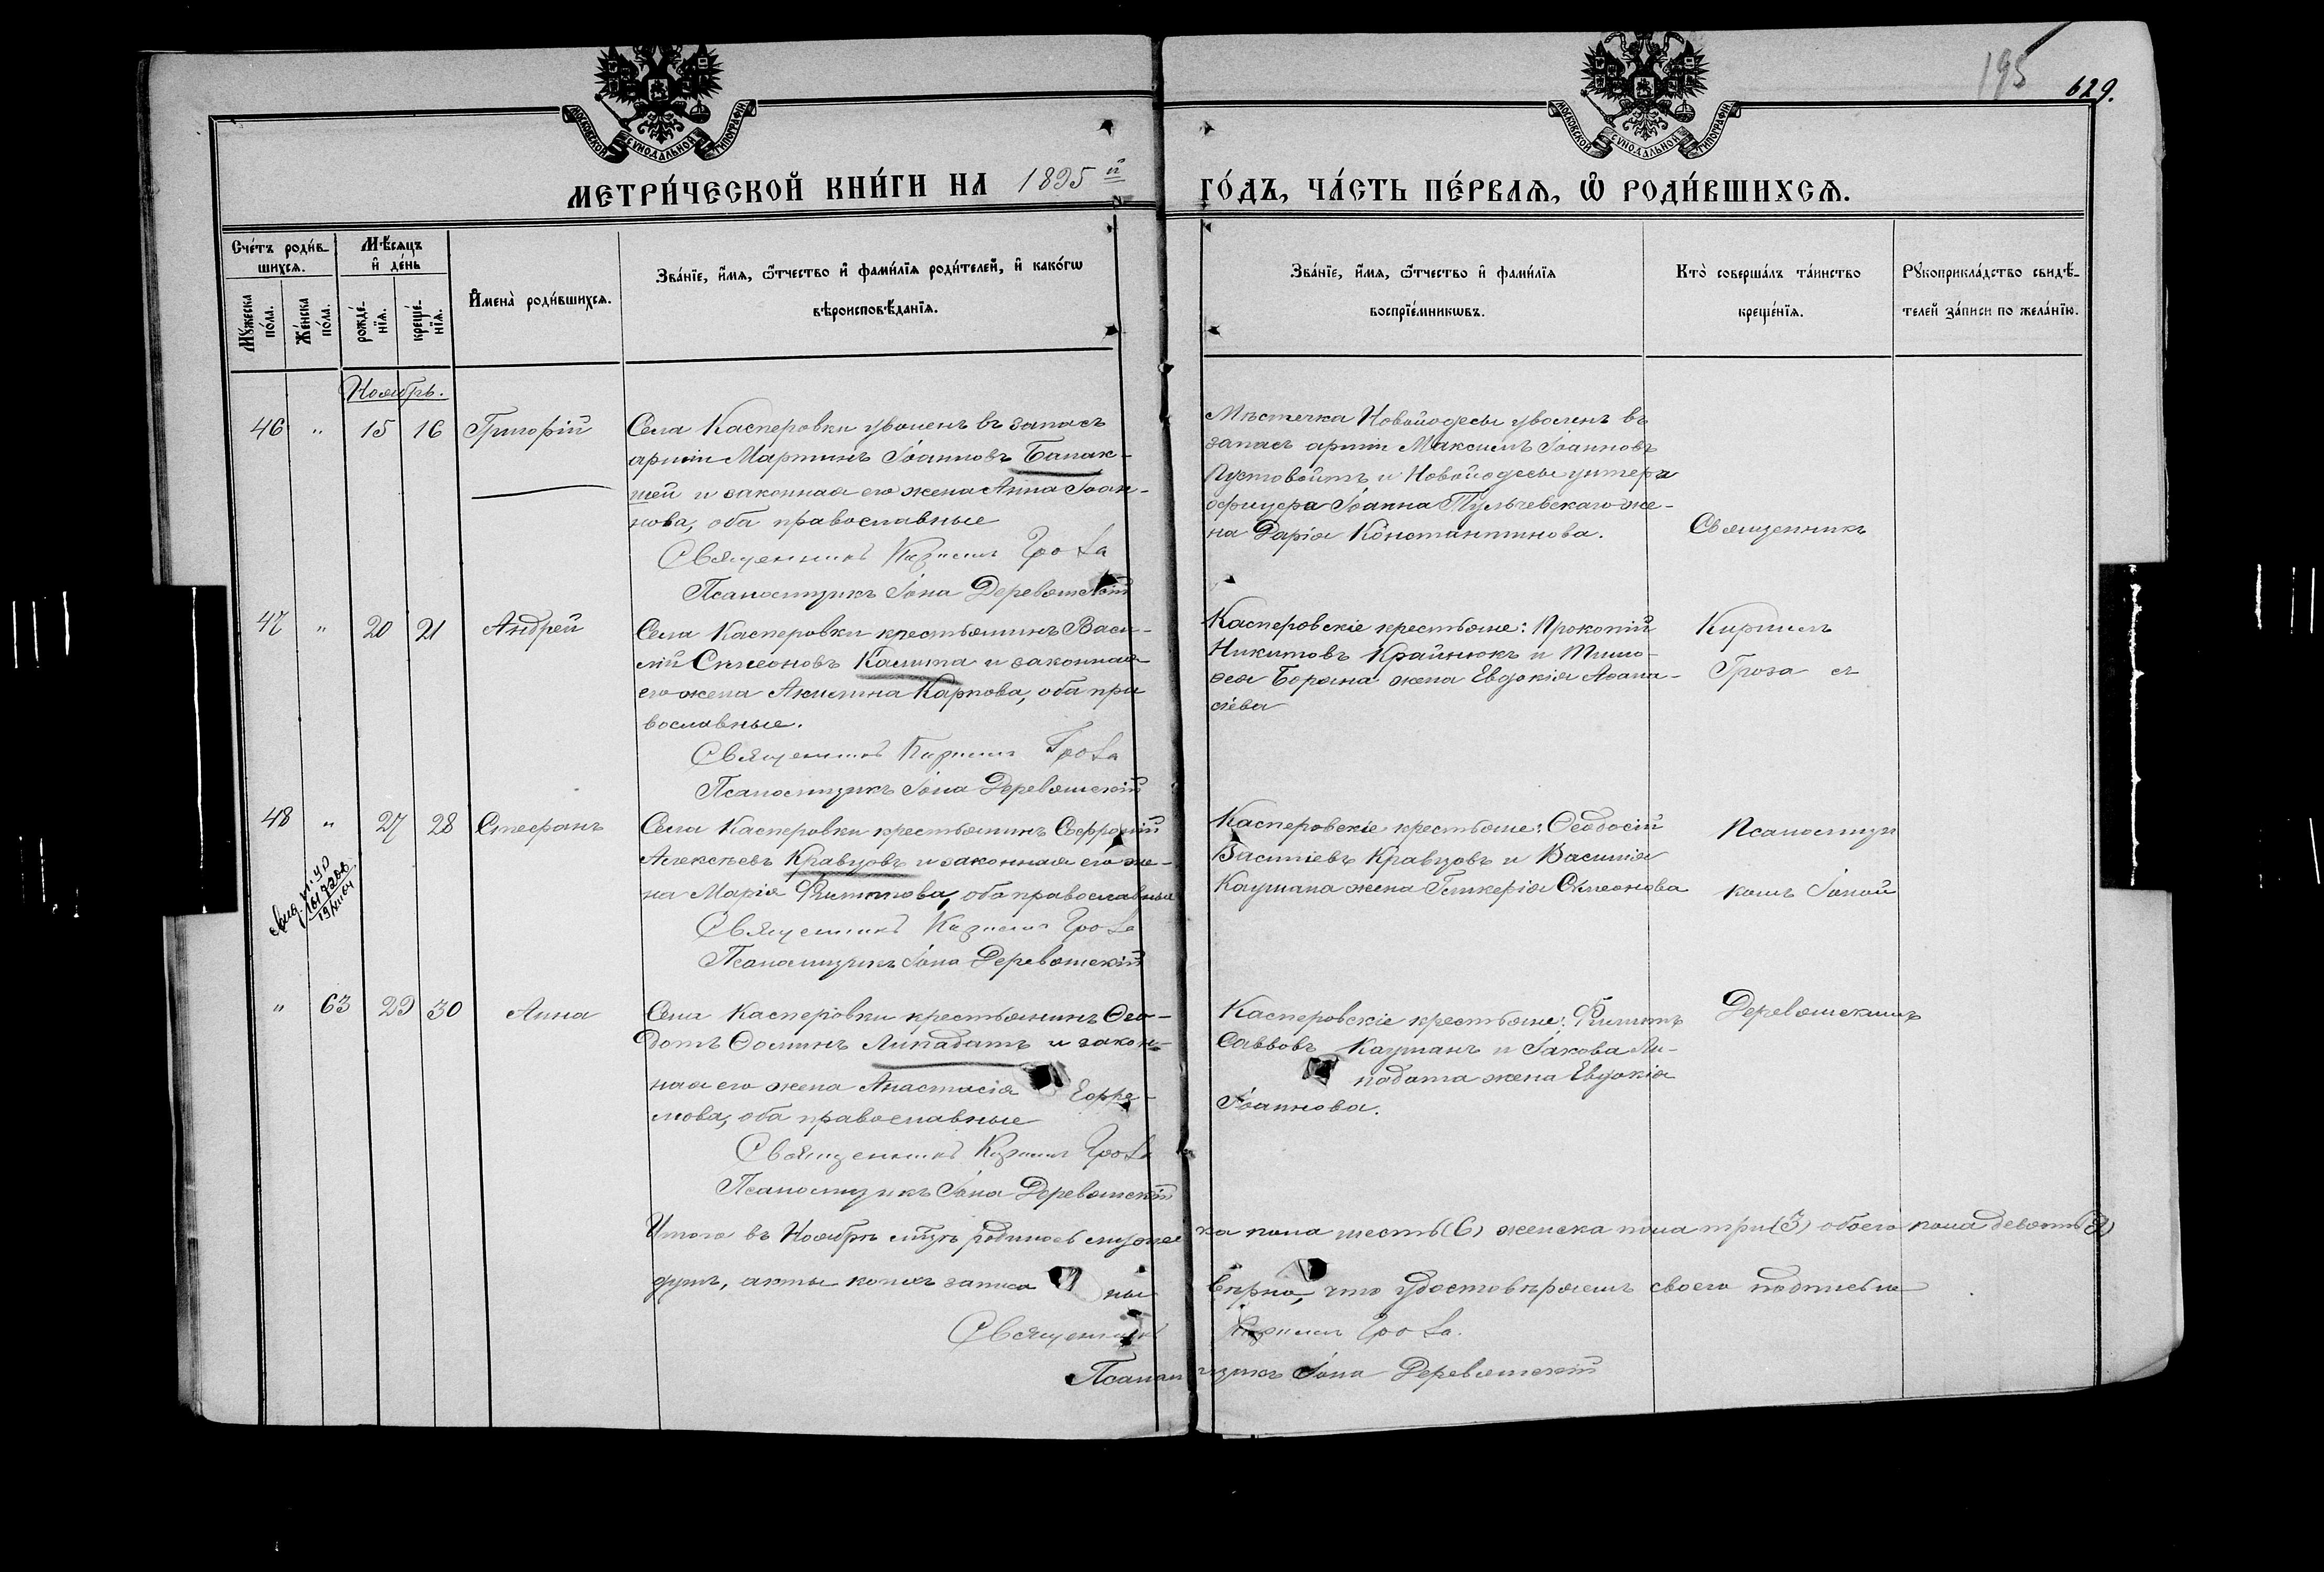 195 629.
МОСКОВСКОЙ СѴНОДАЛЬНОЙ ТИПОГРАФІИ
МОСКОВСКОЙ СѴНОДАЛЬНОЙ ТИПОГРАФІИ
МЕТРИ́ЧЕСКОЙ КНИ́ГИ НА 1895й ГО́ДЪ, ЧА́СТЬ ПЕ́РВАѦ, Ѡ РОДИ́ВШИХСѦ.
Сче́тъ роди́в-
шихсѧ.
Мꙋ́жеска по́ла.
Же́нска по́ла.
Мѣ́сѧцъ
и де́нь
рожде́-
нїѧ.
креще́-
нїѧ.
Имена̀ роди́вшихсѧ.
Зва́нїе, и́мѧ, ѻ́тчество и фами́лїѧ роди́телей, и како́гѡ
вѣроисповѣ́данїѧ.
Зва́нїе, и́мѧ, ѻ́тчество и фами́лїѧ
воспрїе́мникѡвъ.
Кто̀ соверша́лъ та́инство
креще́нїѧ.
Рꙋкоприкла́дство свидѣ́-
телей за́писи по жела́нїю.
Ноябрь.
46 " 15 16 Григорій
Села Касперовки уволенъ въ запасъ
арміи Мартинъ Іоанновъ Балак-
шей и законная его жена Анна Іоан-
нова, оба православные
Священникъ Кириллъ Гроза
Псаломщикъ Іона Деревянскій
Мѣстечка Новойодесы уволенъ въ
запасъ арміи Максимъ Іоанновъ
Пустовойтъ и Новойодесы унтеръ
офицера Іоанна Пульчевскаго же-
на Дарія Константинова.
Священникъ
47 " 20 21 Андрей
Села Касперовки крестьянинъ Васи-
лій Симеоновъ Калита и законная
его жена Акилина Карпова, оба пра
вославные.
Священникъ Кириллъ Гроза
Псаломщикъ Іона Деревянскій
Касперовскіе крестьяне: Прокопій
Никитовъ Крайнюкъ и Тимо-
ѳея Боряна жена Евдокія Аѳана-
сіева
Кириллъ
Гроза съ
48 " 27 28 Стефанъ
Села Касперовки крестьянинъ Софроній
Алексѣевъ Кравцовъ и законная его же-
на Марія Филиппова, оба православные
Священникъ Кириллъ Гроза
Псаломщикъ Іона Деревянскій
Касперовскіе крестьяне: Ѳеодосій
Василіевъ Кравцовъ и Василія
Кацмана жена Гликерія Симеонова
Псаломщи
комъ Іоной
" 63 29 30 Анна
Села Касперовки крестьянинъ Ѳео-
дотъ Ѳоминъ Липадатъ и закон-
ная его жена Анастасія Ефре-
мова, оба православные
Священникъ Кириллъ Гроза
Псаломщикъ Іона Деревянскій
Касперовскіе крестьяне: Филиппъ
Саввовъ Кацманъ и Іакова Ли-
падата жена Евдокія
Іоаннова.
Деревянскимъ
Итого въ Ноябрѣ мѣсяцѣ родилось мужес ка пола шесть (6) женска пола три (3) обоего пола девять (9)
душъ, акты коихъ записа ны вѣрно, что удостовѣряемъ своею подписью
Священникъ Кириллъ Гроза.
Псаломщикъ Іона Деревянскій